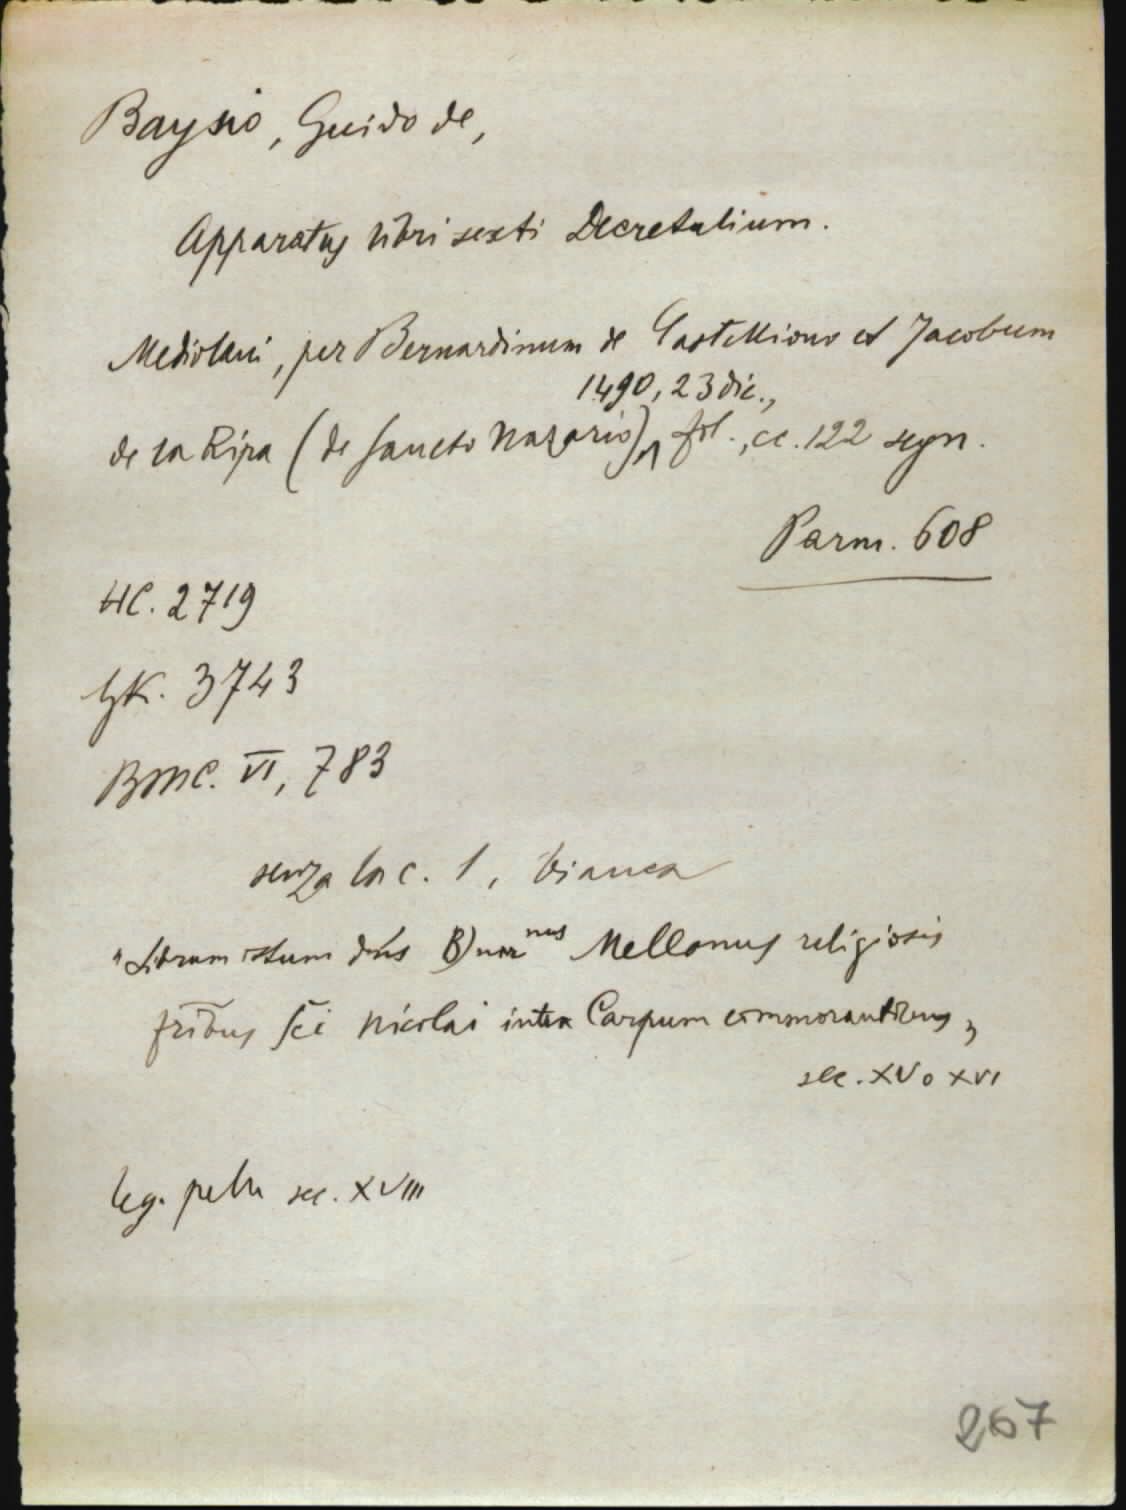 Baysio, Guido de,
Apparatus libri sexti Decretalium.
Mediolani, per Bernardinum de Castelliono et Jacobum
1490, 23 dic.,
de la Ripa (de Sancto Nazario), fol., cc. 122 segn.
Parm. 608
HC. 2719
GK. 3743
BMC. VI, 783
senza la c. 1, bianca
"Librum istum dn̄s Mellonus religiosis
frībus Sc̄i Nicolai Carpum commorantibus,
sec. XV o XVI
leg. pelle sec. XVIII
267